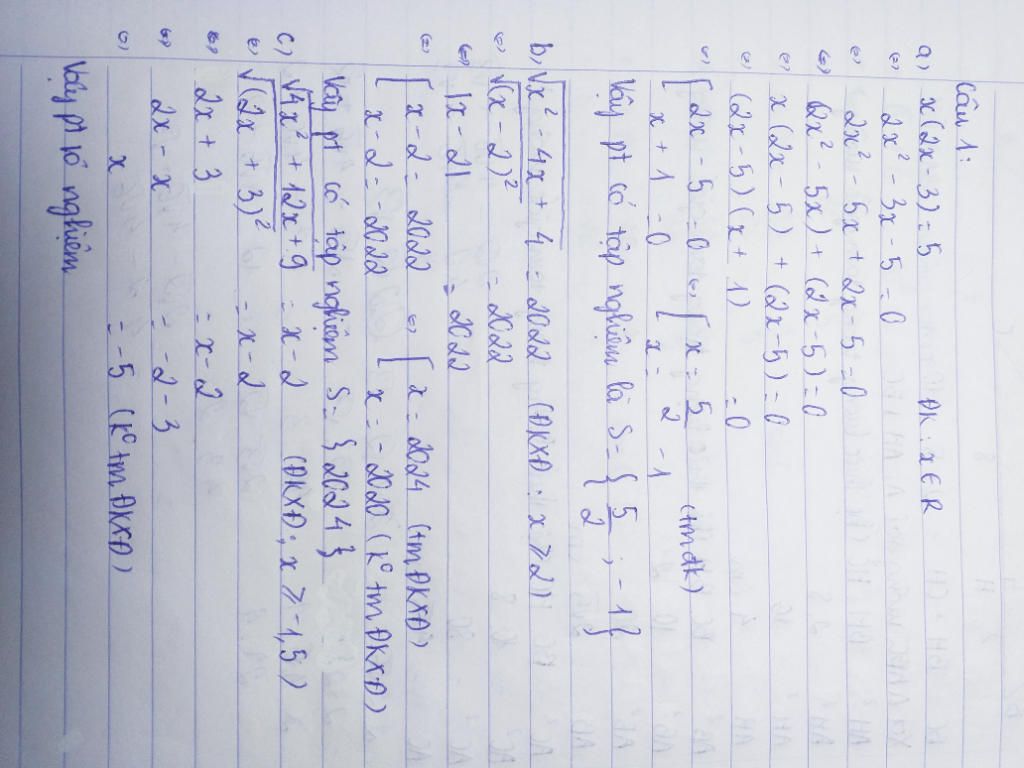 Câu 1:
a) x(2x - 3) = 5 ĐK: x ∈ R
(=) 2x² - 3x - 5 = 0
(=) 2x² - 5x + 2x - 5 = 0
(=) (2x² - 5x) + (2x - 5) = 0
(=) x(2x - 5) + (2x - 5) = 0
(=) (2x - 5)(x + 1) = 0
(=) [ 2x - 5 = 0 (=) [ x = 5/2 (tm đk)
x + 1 = 0 x = -1
Vậy pt có tập nghiệm là S = { 5/2 ; -1 }
b) √(x² - 4x + 4) = 2022 (ĐKXĐ: x ≥ 2)
(=) √(x - 2)² = 2022
(=) |x - 2| = 2022
(=) [ x - 2 = 2022 (=) [ x = 2024 (tm ĐKXĐ)
x - 2 = -2022 x = -2020 (k° tm ĐKXĐ)
Vậy pt có tập nghiệm S = { 2024 }
c) √(4x² + 12x + 9) = x - 2 (ĐKXĐ: x ≥ -1,5)
(=) √(2x + 3)² = x - 2
(=) 2x + 3 = x - 2
(=) 2x - x = -2 - 3
(=) x = -5 (k° tm ĐKXĐ)
Vậy pt vô nghiệm